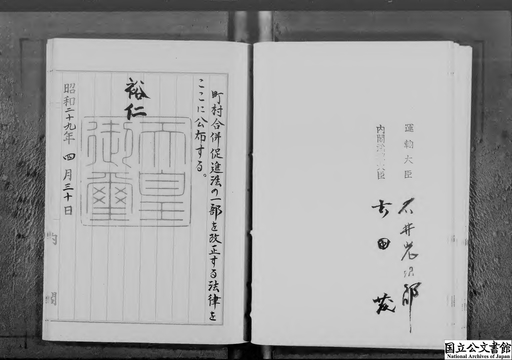 運輸大臣
石井光次郎
内閣総理大臣
吉田茂
町村合併促進法の一部を改正する法律を
ここに公布する。
裕仁
天皇
御璽
昭和二十九年四月三十日
国立公文書館
National Archives of Japan